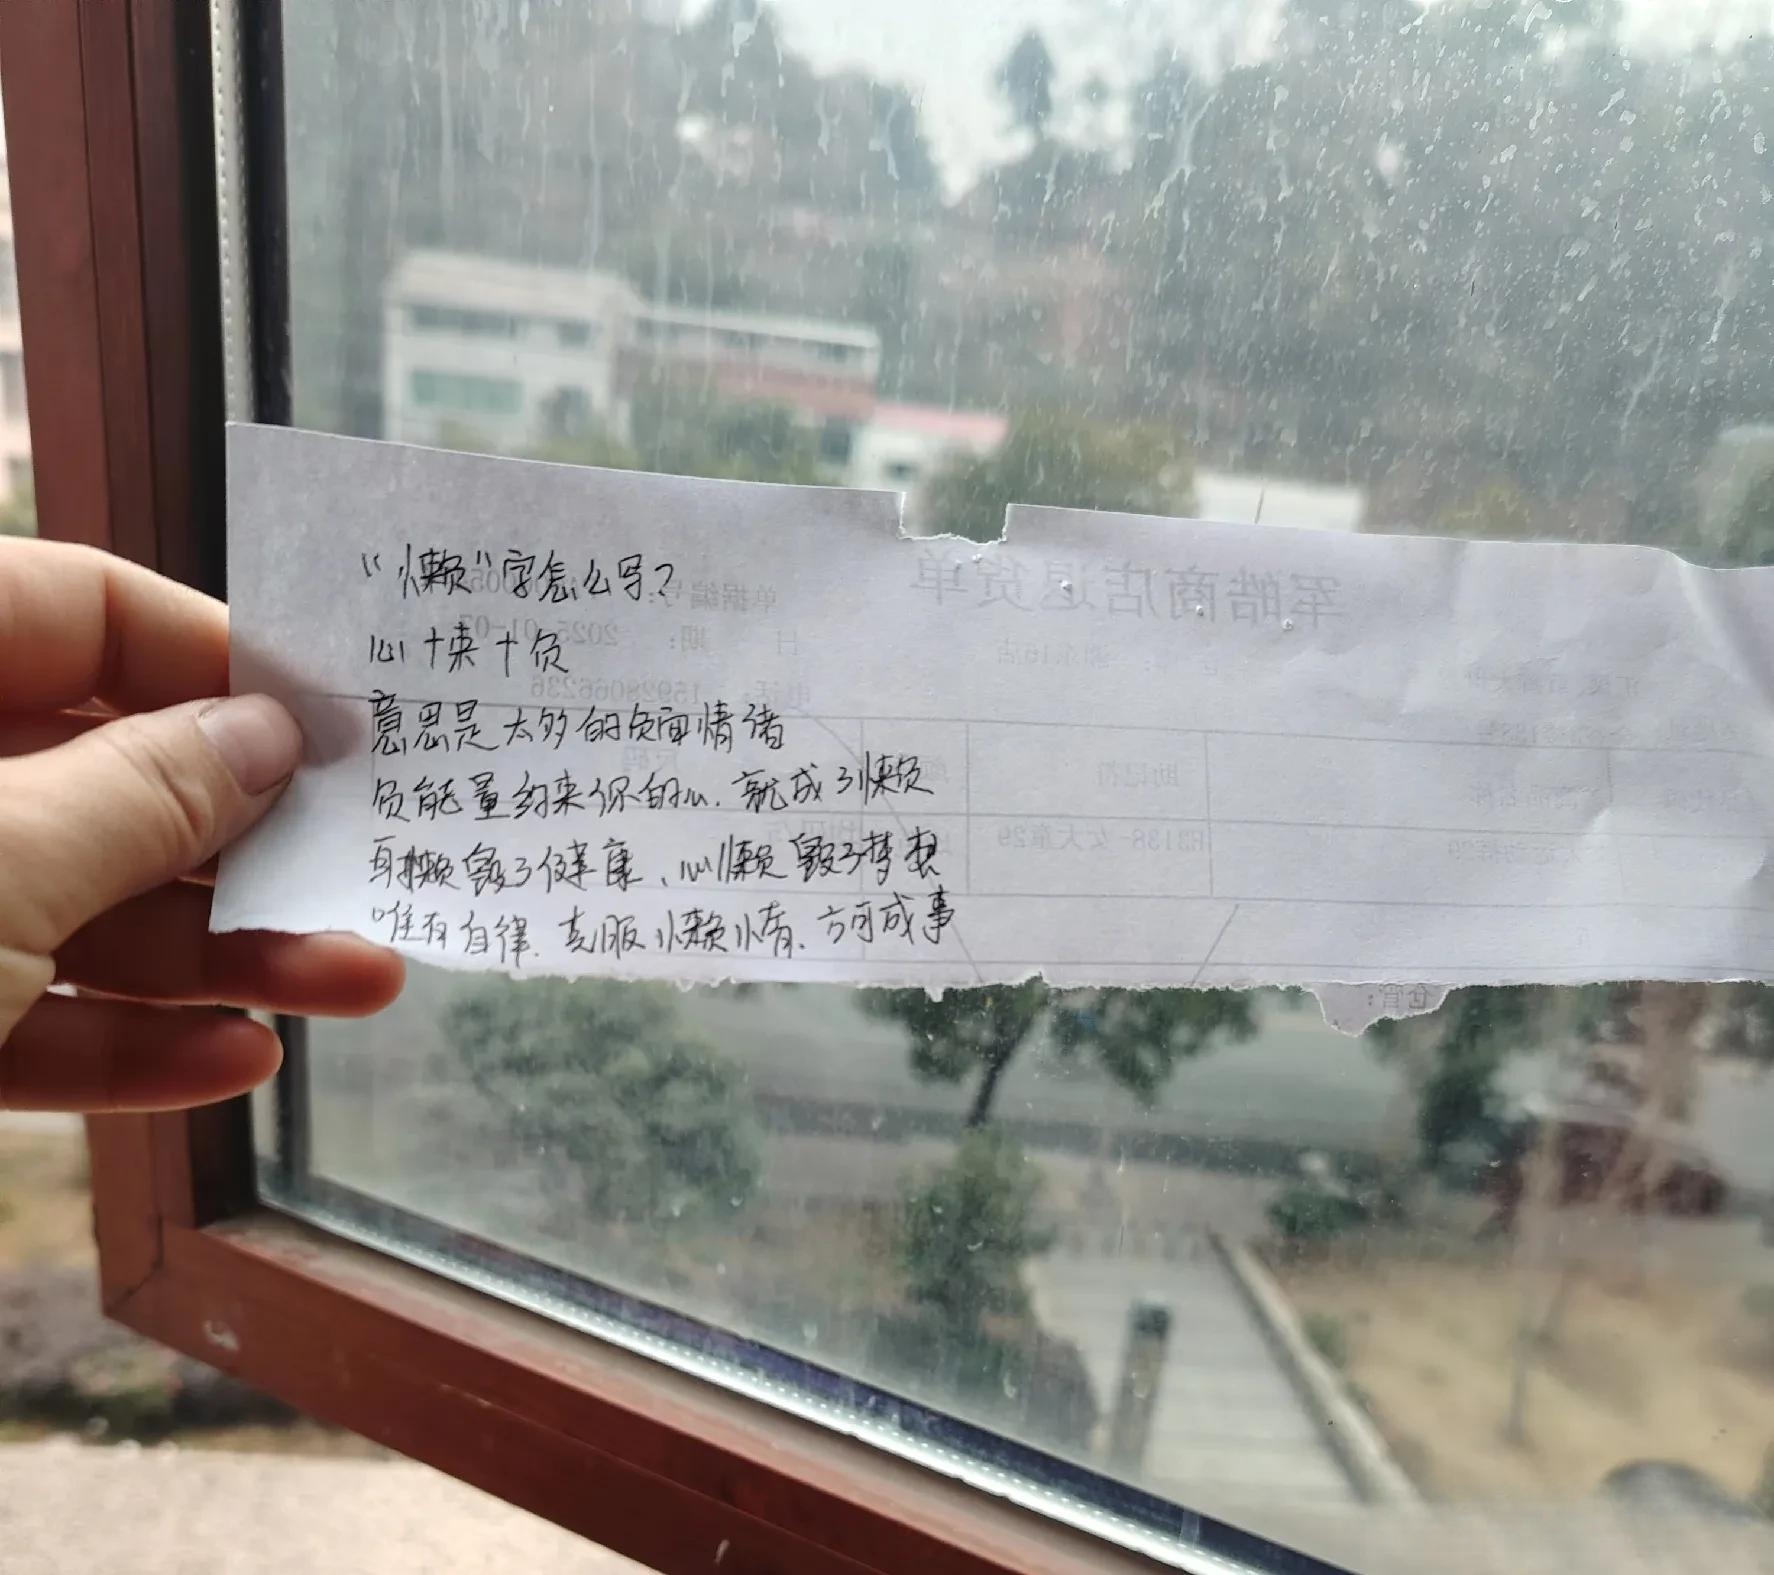 “懒”字怎么写?
心+束+负
意思是太多的负面情绪
负能量约束你的心.就成了懒
身懒毁了健康、心懒毁了梦想
唯有自律.克服懒惰.方可成事
军皓商店退货单
单据编号:
日 期: 2025-01-07
电话: 15928066236
尺码
助记符
R3138-女大童29
仓管: